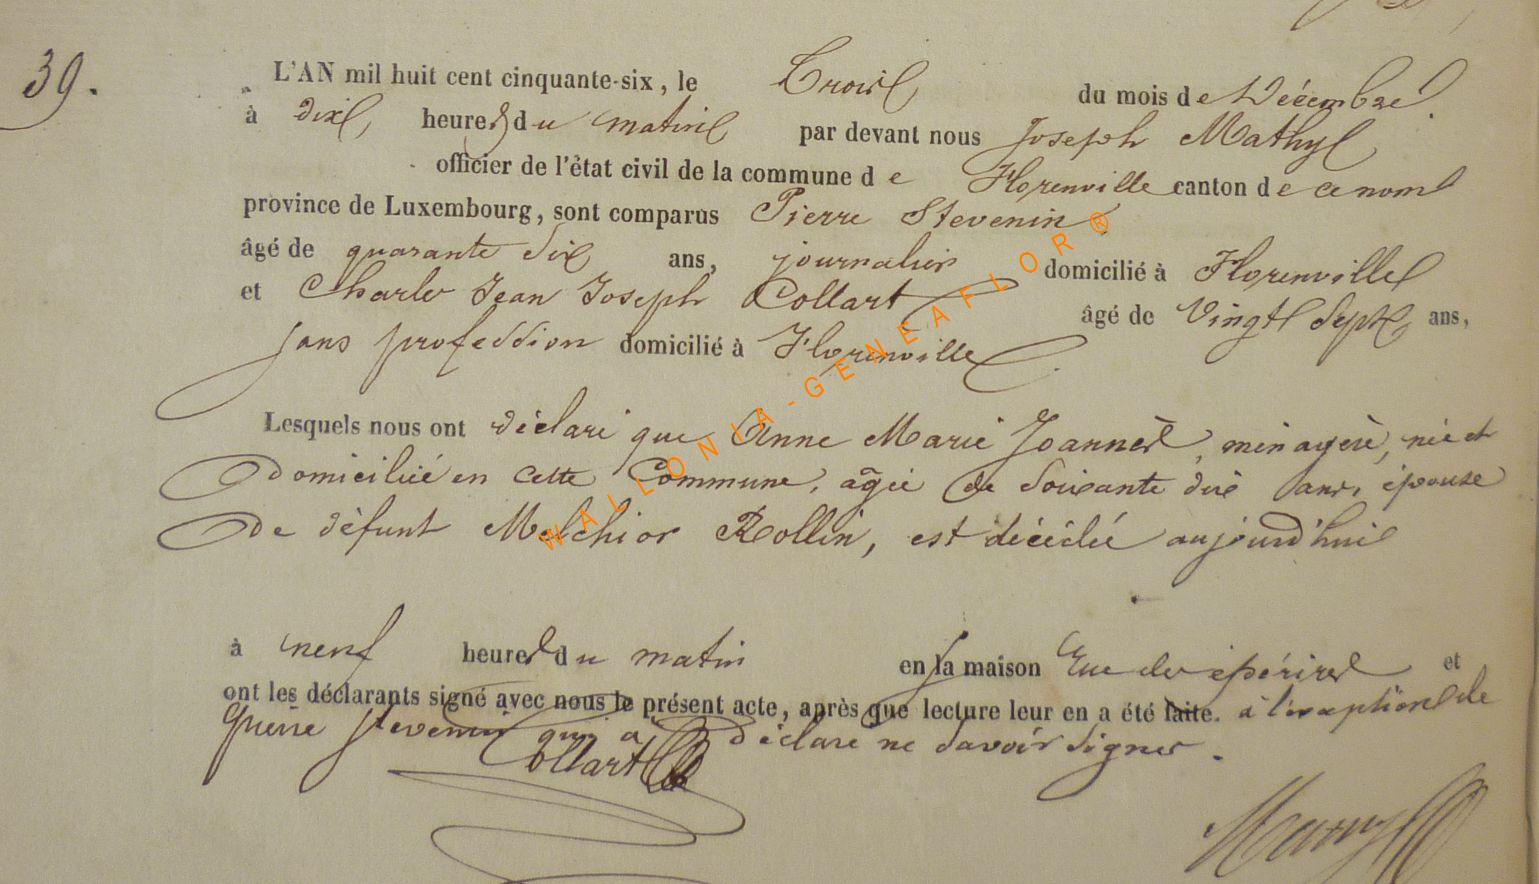 39.
L'AN mil huit cent cinquante-six, le Trois du mois de Décembre
à dix heures du matin par devant nous Joseph Mathy
officier de l'état civil de la commune de Florenville canton de ce nom
province de Luxembourg, sont comparus Pierre Stevenin
âgé de quarante six ans, journalier domicilié à Florenville
et Charles Jean Joseph Collart âgé de Vingt Sept ans,
sans profession domicilié à Florenville
Lesquels nous ont déclaré que Anne Marie Joannes, ménagère, née et
domiciliée en cette Commune, agée de Soixante dix ans, épouse
De défunt Melchior Rollin, est décédée aujourd'hui
à neuf heures du matin en sa maison Rue des épérires et
ont les déclarants signé avec nous le présent acte, après que lecture leur en a été faite. à l'exception de
Pierre Stevenin qui a déclaré ne Savoir Signer.
Collart
Mathy
WALLONIA-GENEAFLOR®